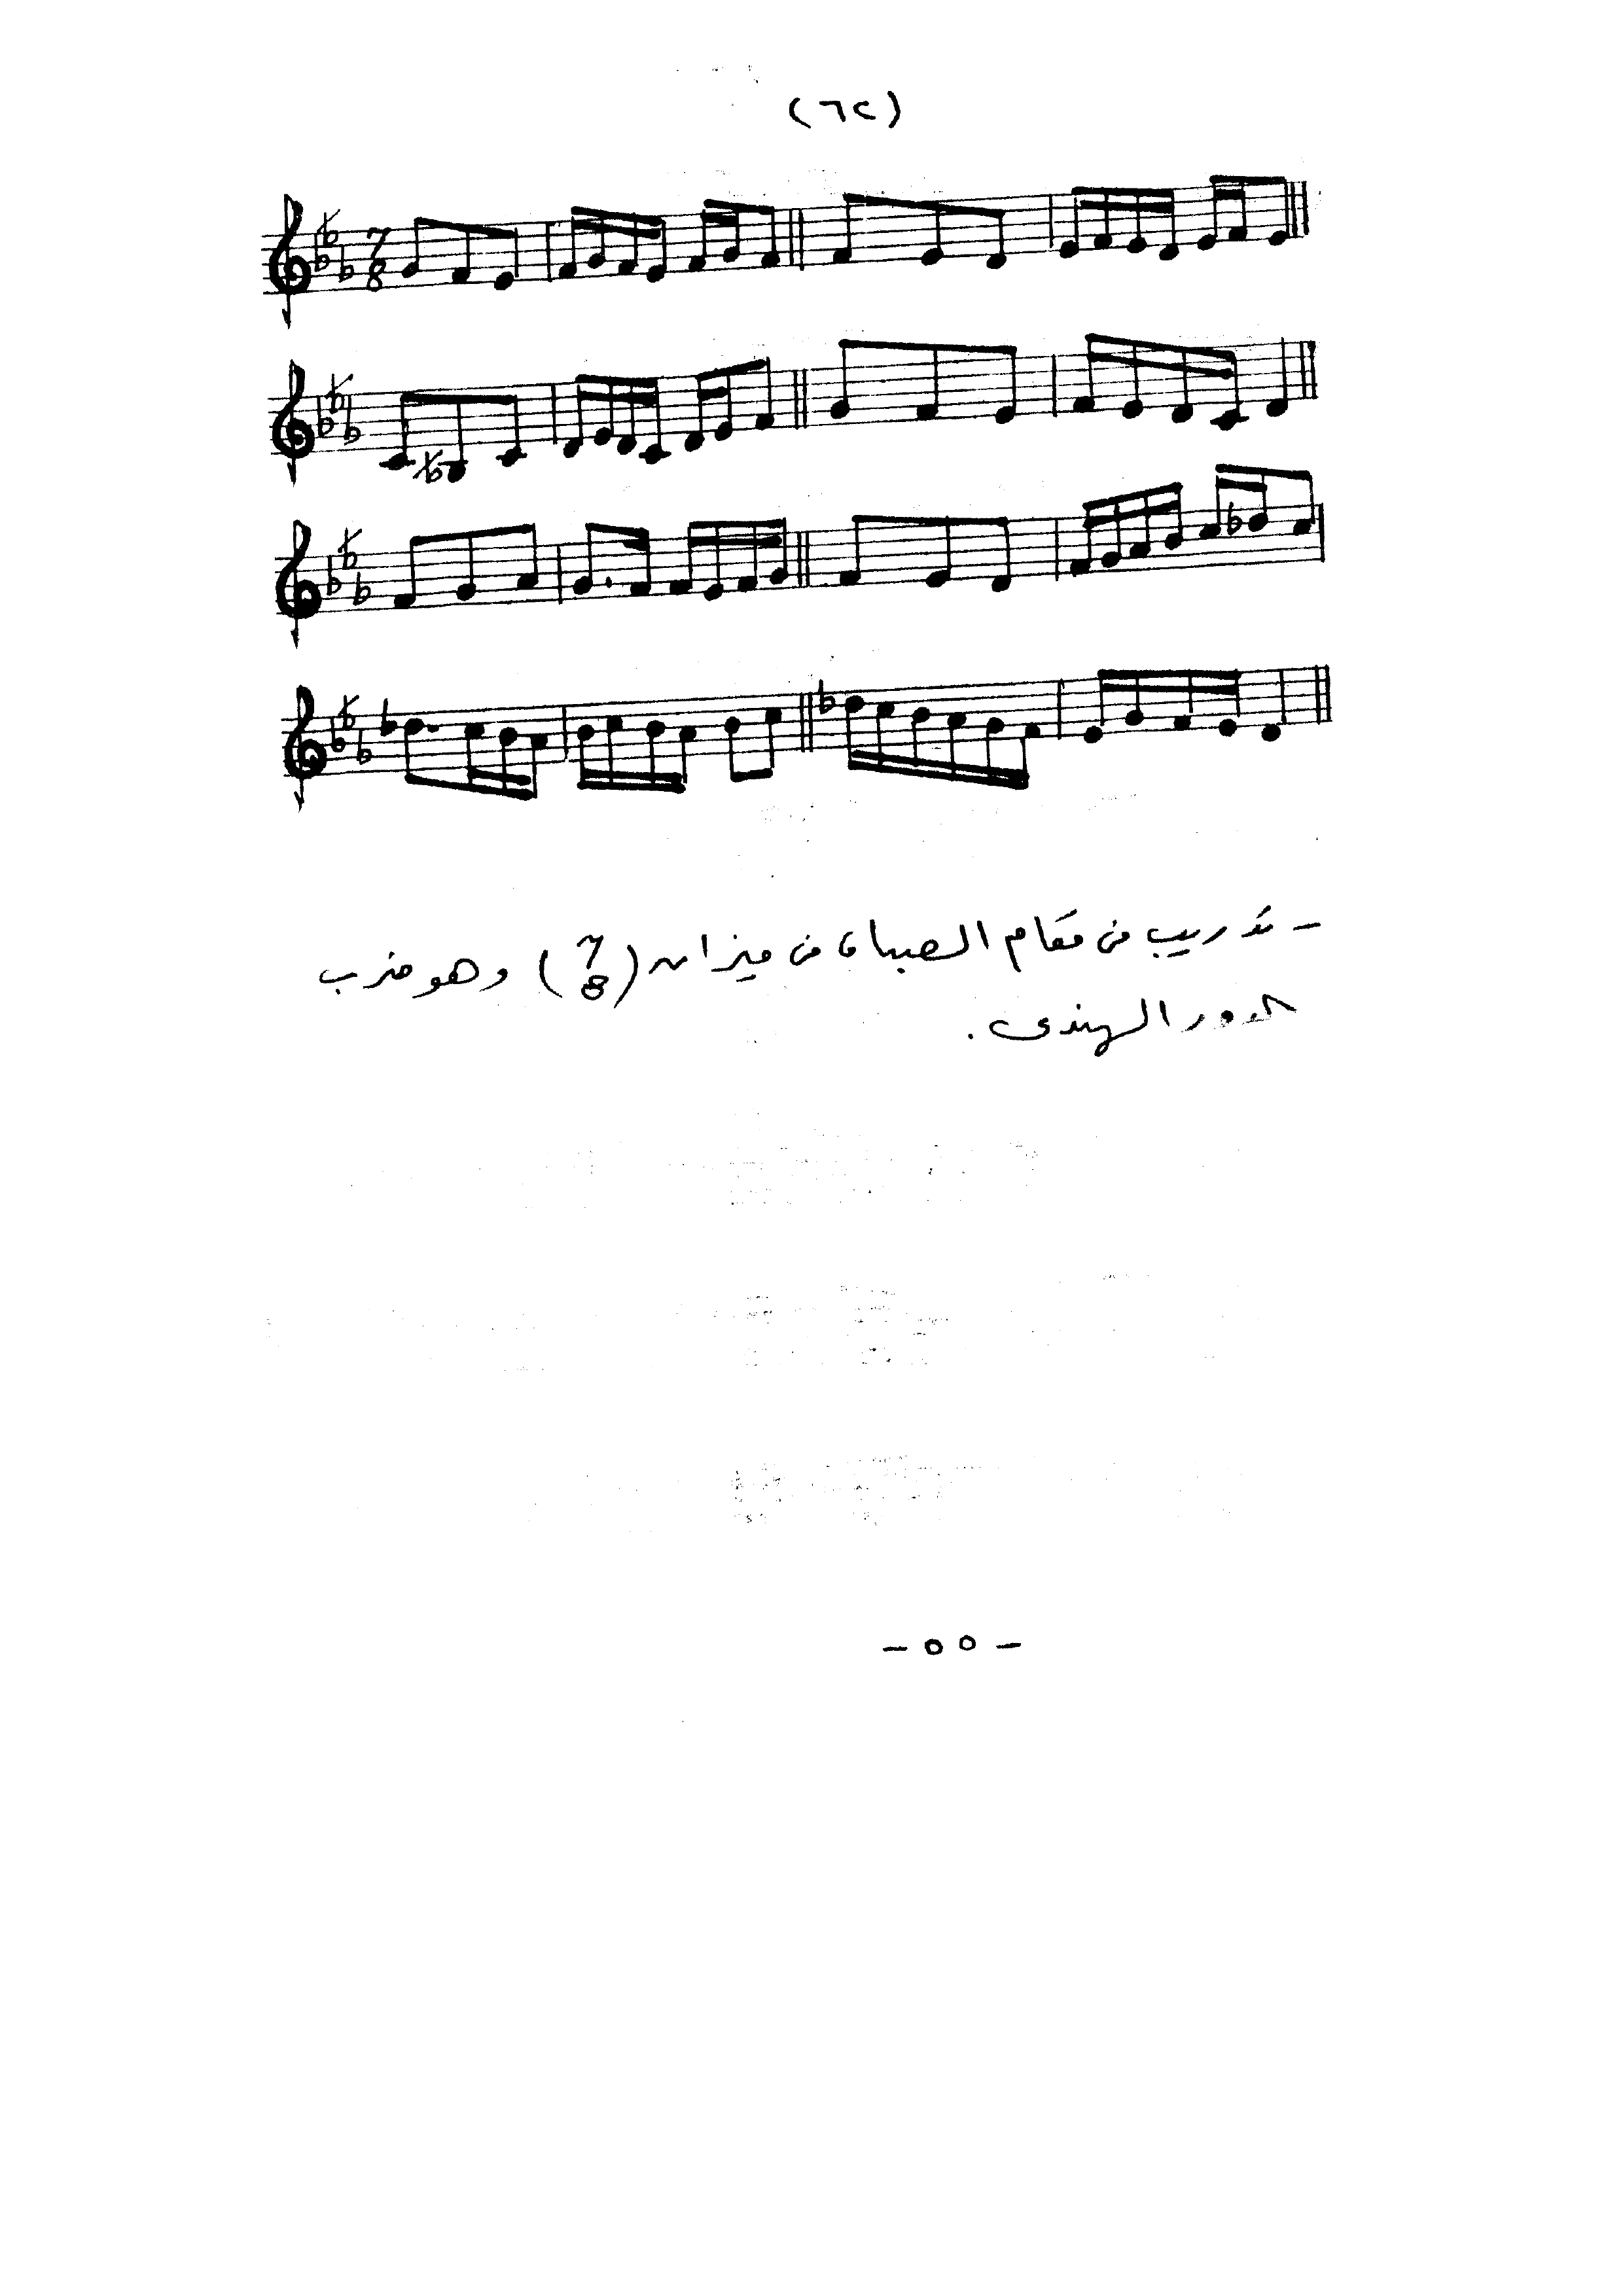 (٦٢)
7
8
- تدريب من مقام الصبا، من ميزان (7/8) وهو ضرب
الدور الهندى.
- ٥٥ -